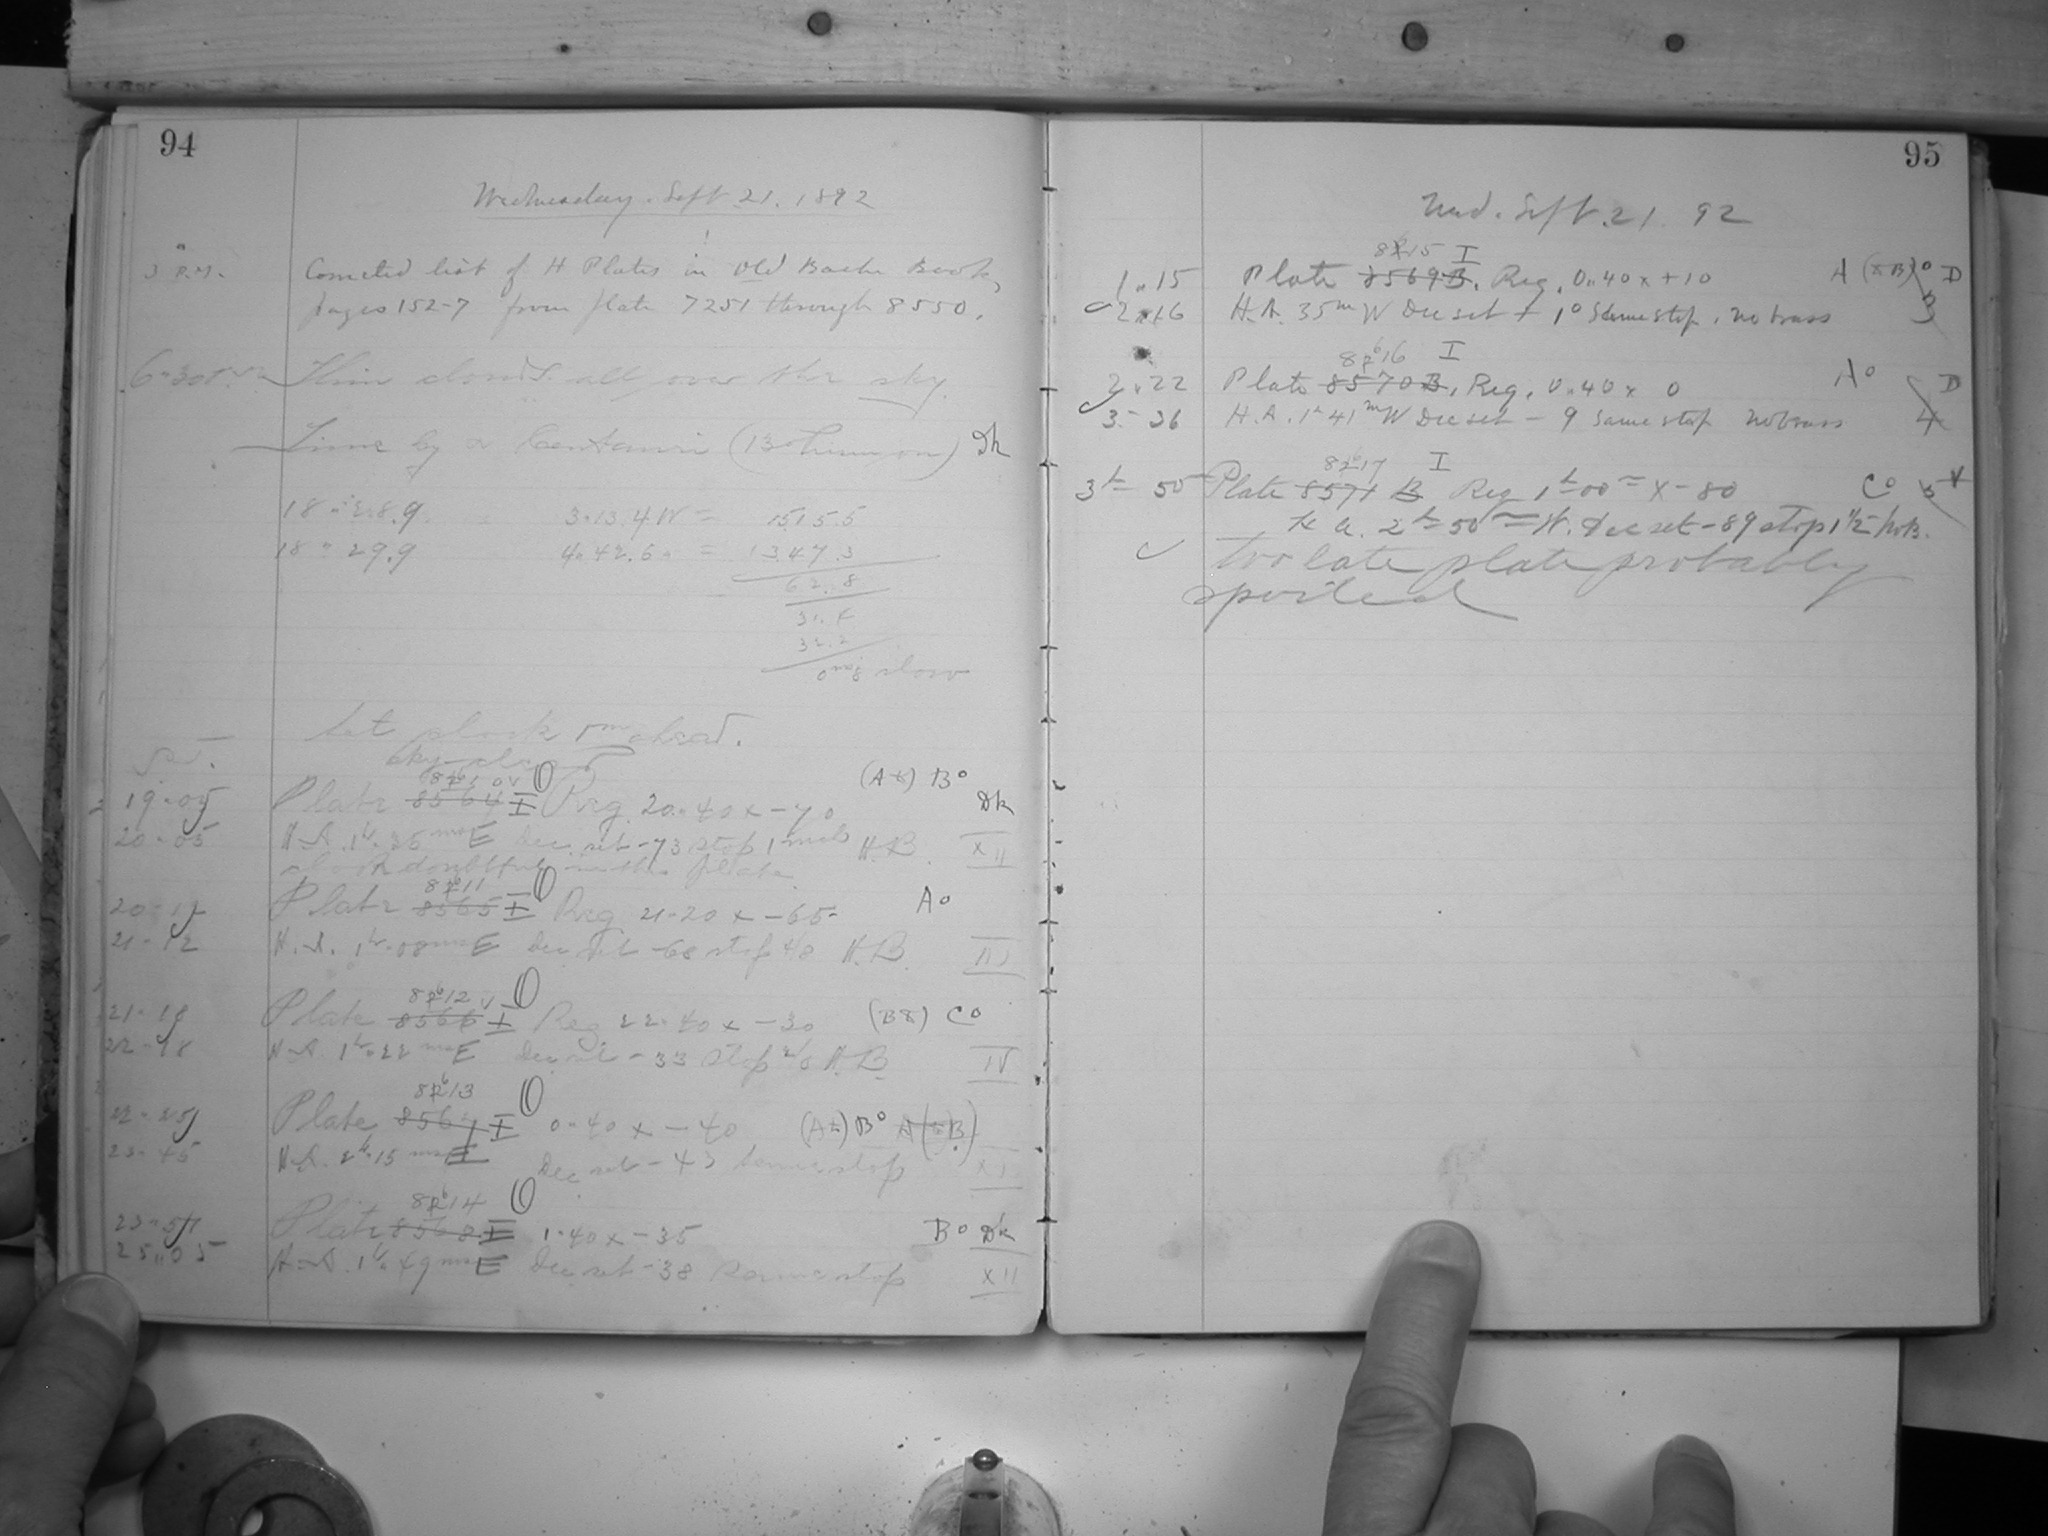 94
Wednesday. Sept 21. 1892
3 P.M. Corrected list of H Plates in Old Bache Book,
pages 152-7 from plate 7251 through 8550.
6-30 Thin clouds all over the sky.
Time by α Centauri (13 ) Dk
18 28.9 3.13.4 W = 1515.5
18 29.9 4.42.6 = 1347.3
62.8
31.4
32.2
0ms8 slow
Set clock 1m ahead.
Sky clear
(A) B°
19-05 Plate 8564 I Reg 20.40 x -70 Dk
20-05 H.A. 1h.35ms E Dec set -73 stop 1 H.B. XII
doubtful in this plate
8611
20-12 Plate 8565 I Reg 21-20 x -65 A°
21-12 H.A. 1h.08ms E Dec set -68 stop H.B.
8612
21-18 Plate 8566 I Reg 22-40 x -30 (B8) C°
22-18 H.A. 1h.22ms E Dec set -33 stop H.B. IV
8613
22-25 Plate 8567 I 0-40 x -40 (A) B° A(B)
23-45 H.A. 2h.15ms E Dec set -43 same stop XI
8614
23-51 Plate 8568 I 1-40 x -35 B° Dk
25.05 H.A. 1h.49ms E Dec set -38 same stop XII
95
Wed. Sept. 21 92
8615 I
1.15 Plate 8569 B. Reg. 0.40 x +10 A (B)° D
2.16 H.A. 35m W Dec set + 1° Same stop. no brass 3
8616 I
2.22 Plate 8570 B, Reg. 0.40 x 0 A° D
3-26 H.A. 1h 41m W Dec set - 9 Same stop no brass 4
8617 I
3h- 50 Plate 8571 B Reg 1h-00m x -80 C°
H a. 2h-50m W. Dec set -89 stop 1 1/2 no B.
too late plate probably
spoiled